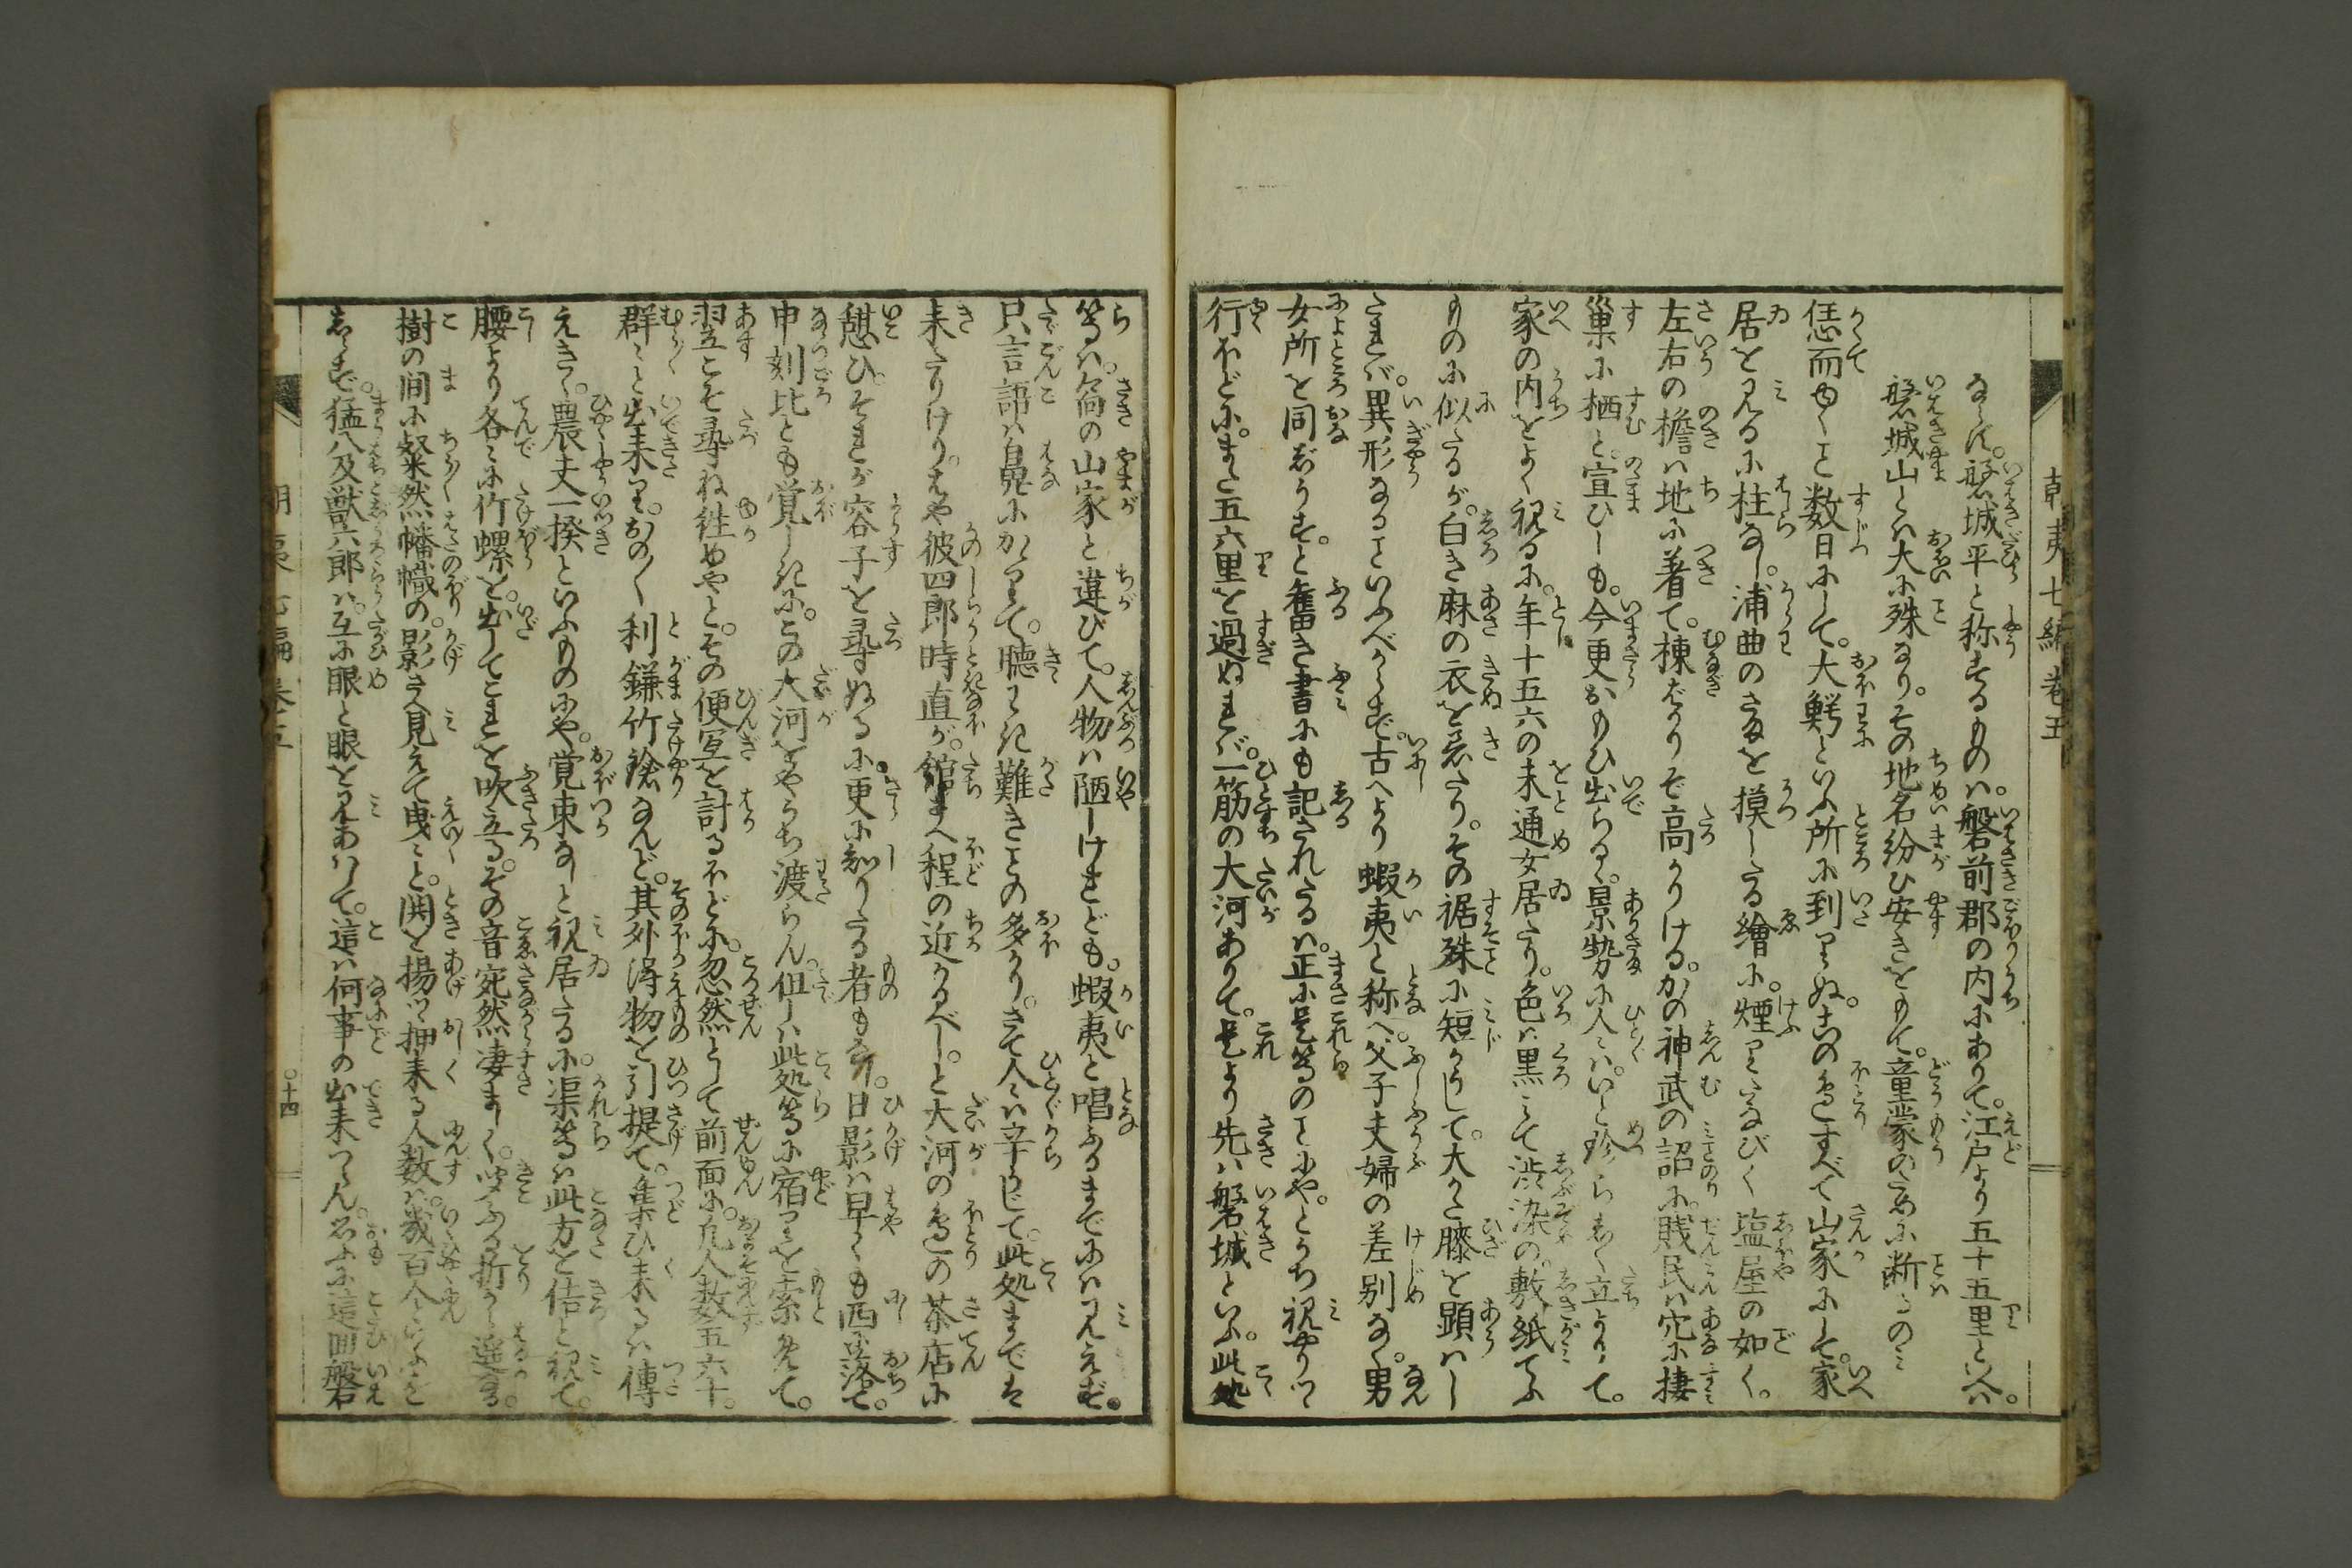 朝夷七編巻五
ならん。磐城平と称するものハ。磐前郡の内にありて。江戸より五十五里といへバ。
磐城山とハ大に殊なり。その地名紛ひ安きをもて。童蒙のために断るのミ
恁而ゆくこと数日にして。大鰐といふ所に到りぬ。このほとりすべて山家にして。家
居を見るに柱なし。浦曲のさまを摸したる絵に。煙りたなびく塩屋の如く。
左右の檐ハ地に着て。棟ばかりぞ高かりける。かの神武の詔に。賤民ハ穴に棲
巣に栖と。宣ひしも。今更おもひ出らるゝ。景勢に人々ハ。いと珍らしく立よりて。
家の内をよく視るに。年十五六の未通女居たり。色ハ黒くて渋染の。敷紙てふ
ものに似たるが。白き麻の衣を着たり。その裾殊に短かくして。大かた膝を顕ハし
たれバ。異形なることいふべからず。古へより蝦夷と称へ。父子夫婦の差別なく。男
女所を同じうすと。旧き書にも記されたるハ。正に是等のことにや。とうち視やりつ
行ほどに。また五六里を過ぬれバ。一筋の大河ありて。是より先ハ磐城といふ。此処
等ハ。尚の山家と違ひて。人物ハ陋しけれども。蝦夷と唱ふるまでにハ見えず。
只言語ハ鼻にかゝりて。聴とり難きことの多かり。さて人々ハ辛うじて。此処まで は
来たりけり。はや彼四郎時直が。館まハ程の近かるべし。と大河のほとりの茶店に
憩ひ。それが容子を尋ぬるに。更に知りたる者もなし。日影ハ早くも西に落て。
申刻比とも覚しきに。この大河をやうち渡らん。但しハ此処等に宿りを索めて。
翌こそ尋ね往めやと。その便宜を計るほどに。忽然として前面に。凡人数五六十。
群々と出来り。おの〳〵利鎌竹鎗なんど。其外得物を引提て。集ひ来るハ傳
えきく。農夫一揆といふものにや。覚束なしと視居たるに。渠等ハ此方を佶と視て。
腰より各々に竹螺を。出してこれを吹立る。その音宛然凄まじく。響ふる折から遥なる。
樹の間に粲然幡幟の。影さへ見えて曳々と。鬨を揚つゝ押来る人数ハ。幾百人といふほど
しらず。猛八及獣六郎ハ。互に眼と眼を見あハして。這ハ何事の出来つらん。思ふに這回磐
朝夷七編巻五
〇十四